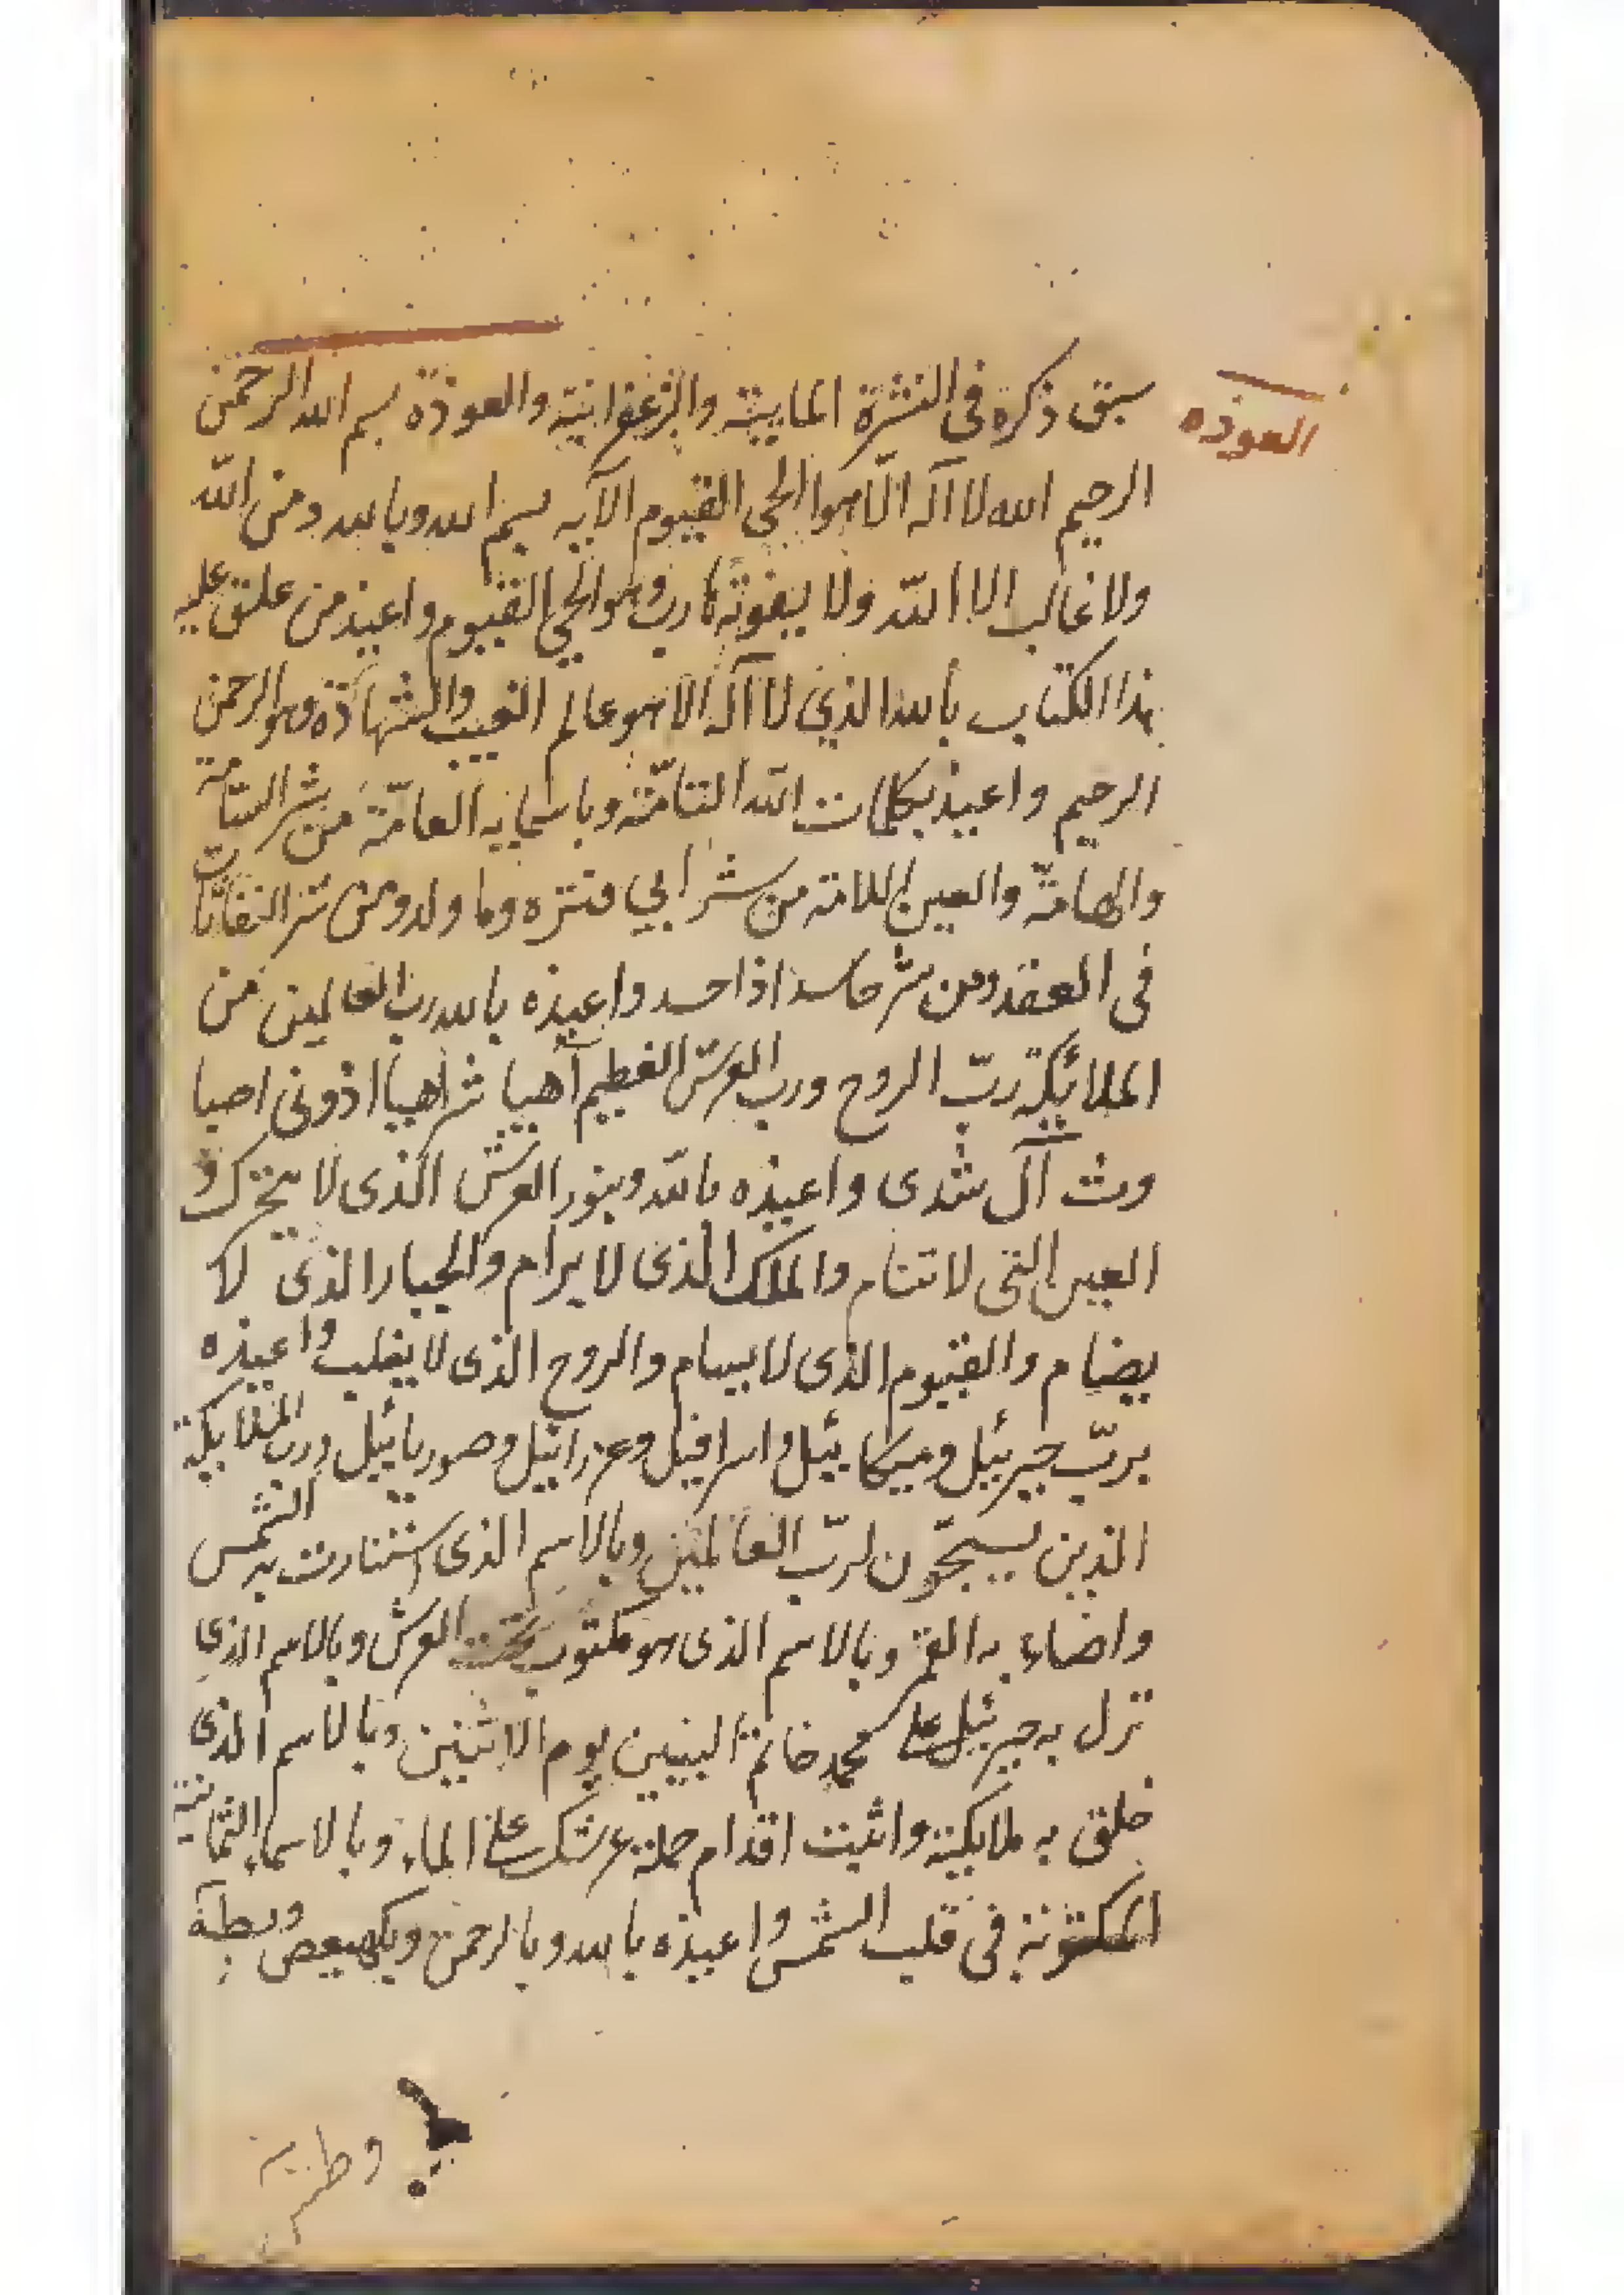 العوذه
سبق ذكره فى النشرة المايية والزعفرانية والعوذة بسم الله الرحمن
الرحيم الله لا اله الا هو الحى القيوم الآيه بسم الله وبالله ومن الله
ولا غالب الا الله ولا يفوته هارب وهو الحي القيوم واعيذ من علق عليه
هذا الكتاب بالله الذي لا اله الا هو عالم الغيب والشهادة وهو الرحمن
الرحيم واعيذ بكلمات الله التامة وباسمايه العامة من شر السامة
والهامة والعين اللامة من شر ابي قترة وما ولد ومن شر النفاثات
فى العقد ومن شر حاسد اذا حسد واعيذه بالله رب العالمين من
الملائكة رب الروح ورب العرش العظيم آهيا شراهيا اذونى اصبا
وث آل شدى واعيذه بالله وبنور العرش الذى لا يتحرك و
العين التى لا تنام والملك الذى لا يرام والجبار الذى لا
يضام والقيوم الذى لا يسام والروح الذى لا يغلب واعيذه
برب جبرئيل وميكائيل واسرافيل وعزرائيل وصوريائيل ورب الملايكة
الذين يسبحون لرب العالمين وبالاسم الذى استنارت به الشمس
واضاء به القمر وبالاسم الذى هو مكتوب تحت العرش وبالاسم الذي
نزل به جبرئيل على محمد خاتم النبيين يوم الاثنين وبالاسم الذى
خلق به ملايكته واثبت اقدام حملة عرشك على الماء وبالاسماء الثمانية
المكتوبة فى قلب الشمس واعيذه بالله وبالرحمن وبكهيعص وبطه